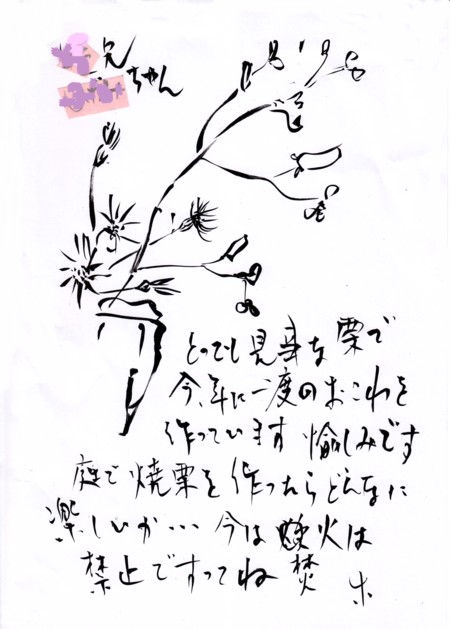 兄
ちゃん
とっても見事な栗で
今、年に一度のおこわを
作っています 愉しみです
庭で焼栗を作ったらどんなに
楽しいか・・・今は焚火は
禁止ですってね 焚